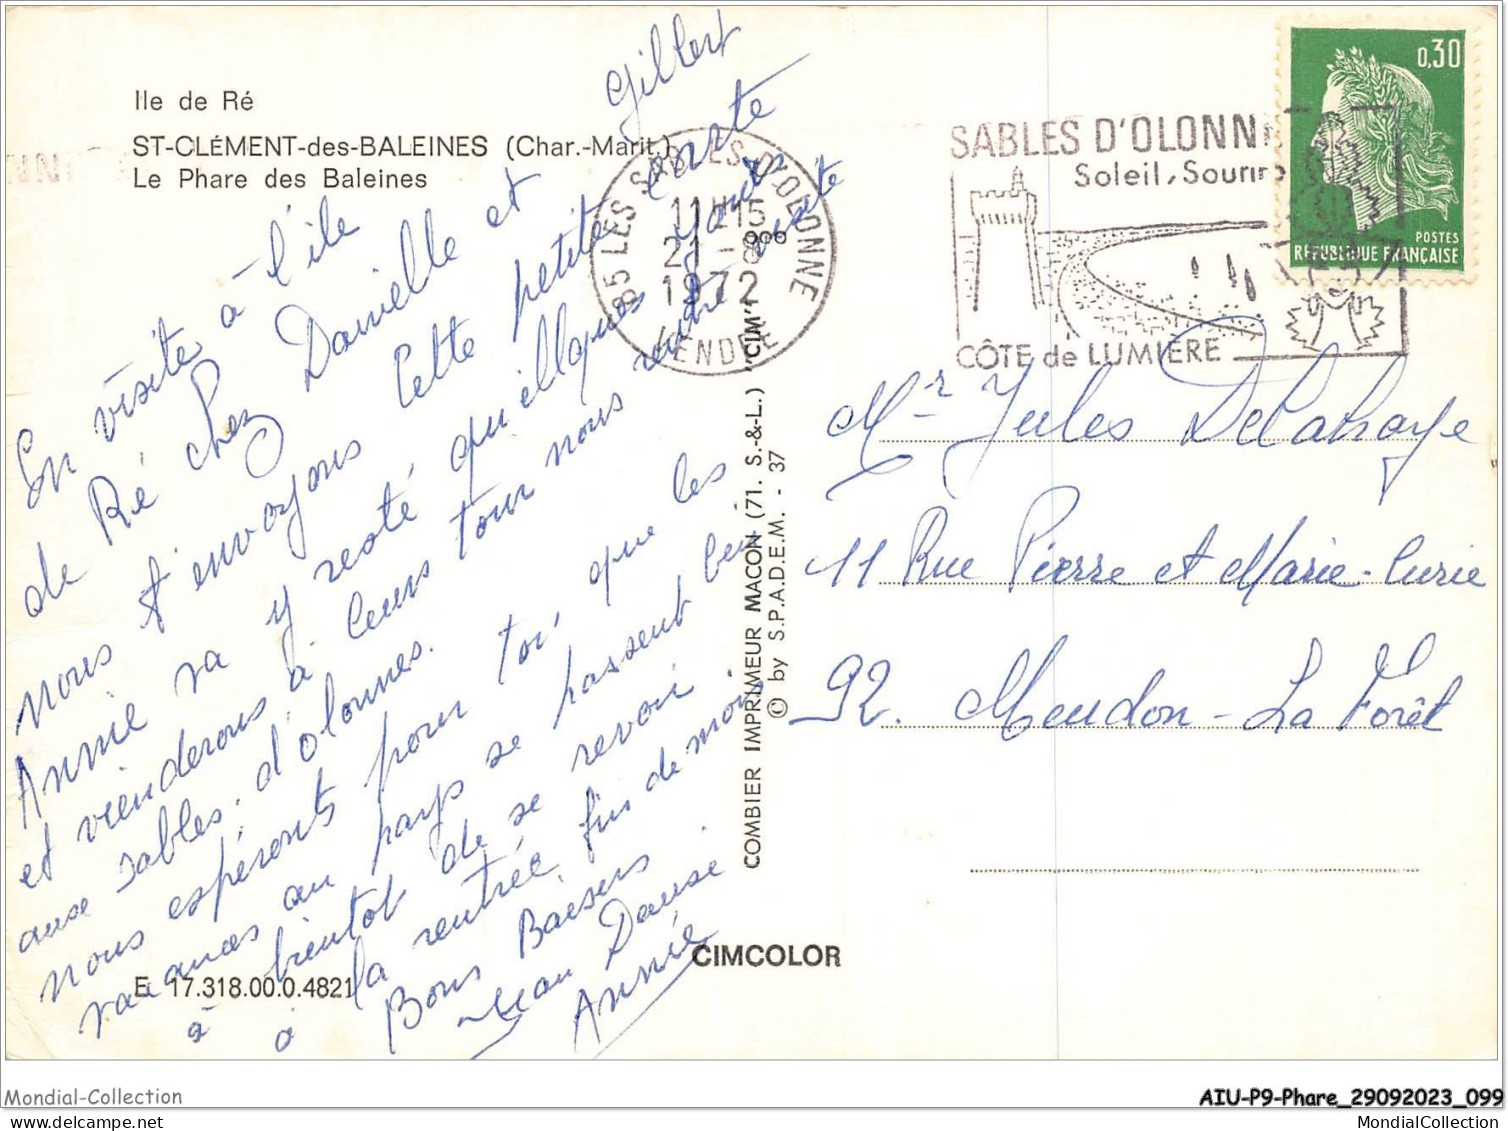 Ile de Ré
ST-CLÉMENT-des-BALEINES (Char.-Marit.)
Le Phare des Baleines
En visite à l'île
de Ré chez Danielle et Gilbert
nous t'envoyons cette petite carte
Annie va y resté quellques jours
et vienderons à leurs tour nous rendre visite
aux Sables. d'olonnes.
nous espéronts pour toi, que les
vacances au pays se passent bien
à bientot de se revoir
à la rentrée, fin de mois
Bons Baisers
Jean Danise
Annie
E. 17.318.00.0.4821
CIMCOLOR
COMBIER IMPRIMEUR MACON (71. S.-&-L.) "CIM"
© by S.P.A.D.E.M. - 37
85 LES SABLES-D'OLONNE
11H15
21-8
1972
VENDÉE
SABLES D'OLONN
Soleil, Sourir
CÔTE de LUMIÈRE
0,30
POSTES
RÉPUBLIQUE FRANÇAISE
Mr Jules Delahaye
11 Rue Pierre et Marie-Curie
92. Meudon-La Forêt
Mondial-Collection
AIU-P9-Phare_29092023_099
MondialCollection